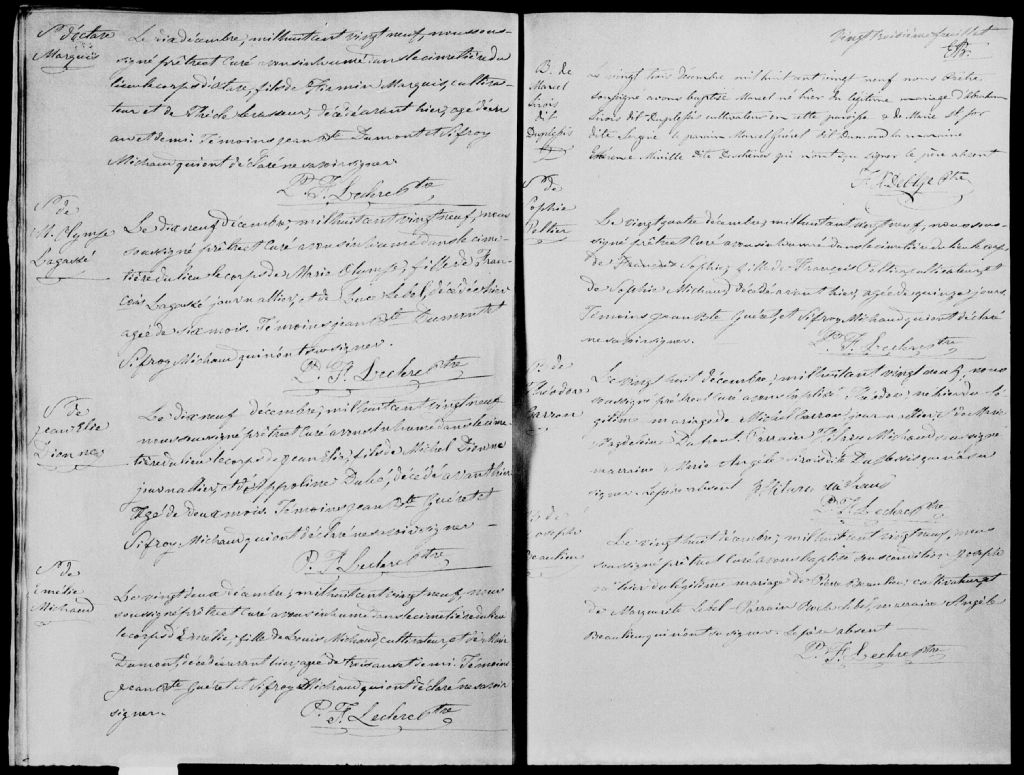 S. d'octave
Marquis
Le dix décembre, mil huit cent vingt neuf, nous sous-
signé prêtre et Curé avons inhumé dans le cimetière du
lieu le corps d'Octave, fils de Firmier Marquis, cultiva-
teur et de Thècle Levasseur, décédé avant hier, agé d'un
an et demi Témoins jean Bte Dumont et Sifroy
Michaud qui ont déclaré ne savoir signer.
P. F. Leclerc Ptre
S. de
M. Olympe
Lagassé
Le dix neuf décembre, mil huit cent vingt neuf, nous
soussigné prêtre et Curé avons inhumé dans le cimi-
tière du lieu le corps de Marie Olympe, fille de Fran-
çois Lagassé journallier, et de Luce Lebel, décédée hier
agée de six mois. Témoins jean Bte Dumont et
Sifroy Michaud qui n'ont su signer.
P. F. Leclerc Ptre
S. de
Jean Elie
Dionne
Le dix neuf décembre, mil huit cent vingt neuf
nous soussigné prêtre et Curé avons inhumé dans le cime-
tière du lieu le corps de Jean Elie, fils de Michel Dionne
journallier, et d'Appoline Dubé, décédé avant hier
agé de deux mois. Témoins jean Bte Guéret et
Sifroy Michaud qui ont déclaré ne savoir signer
P. F. Leclerc Ptre
S. de
Emélie
Michaud
Le vingt deux décembre, mil huit cent vingt neuf, nous
soussigné prêtre et Curé avons inhumé dans le cimetière du lieu
le corps d'Emélie, fille de Louis Michaud, cultivateur, et de Marie
Dumont, décédée avant hier, agée de trois ans et demi. Témoins
jean Bte Guéret et Sifroy Michaud qui ont déclaré ne savoir
signer.
P. F. Leclerc Ptre
Vingt troisième feuillet
B. de
Marcel
Sirois
dit
Duplessis
vingt trois décembre mil huit cent vingt neuf nous Prêtre
soussigné avons baptisé Marcel né hier du légitime mariage d'Abraham
Sirois dit Duplessis cultivateur en cette paroisse & de Marie
dite le parrain Marcel Guéret dit Dumond la marraine
Miville dite Deschènes qui n'ont su signer le père absent
Ptre
S. de
Sophie
Peltier
Le vingt quatre décembre, mil huit cent vingt neuf, nous sous-
signé prêtre et Curé avons inhumé dans le cimetière du lieu le corps
de Sophie, fille de François Peltier, cultivateur, et
de Sophie Michaud, décédée avant hier, agée de quinze jours.
Témoins Jean Bte Guéret, et Sifroy Michaud qui ont déclaré
ne savoir signer.
P. F. Leclerc Ptre
B. de
Théodore
Carron
Le vingt huit décembre, mil huit cent vingt neuf, nous
soussigné prêtre et Curé avons baptisé Théodore né hier du lé-
gitime mariage de Michel Carron, journallier, & de Marie
Magdeleine Parrain Michaud qui a signé
marraine Marie Angèle Sirois dite Duplessis qui n'a su
signer. Le père absent
P. F. Leclerc Ptre
B. de
Joseph
Beaulieu
Le vingt huit décembre, mil huit cent vingt neuf, nous
soussigné prêtre et Curé avons baptisé sous condition Joseph
né hier du légitime mariage de Pierre Beaulieu, cultivateur, et
de Marguerite Lebel. Parrain Roch Lebel, marraine Angèle
Beaulieu qui n'ont su signer. Le père absent
P. F. Leclerc Ptre